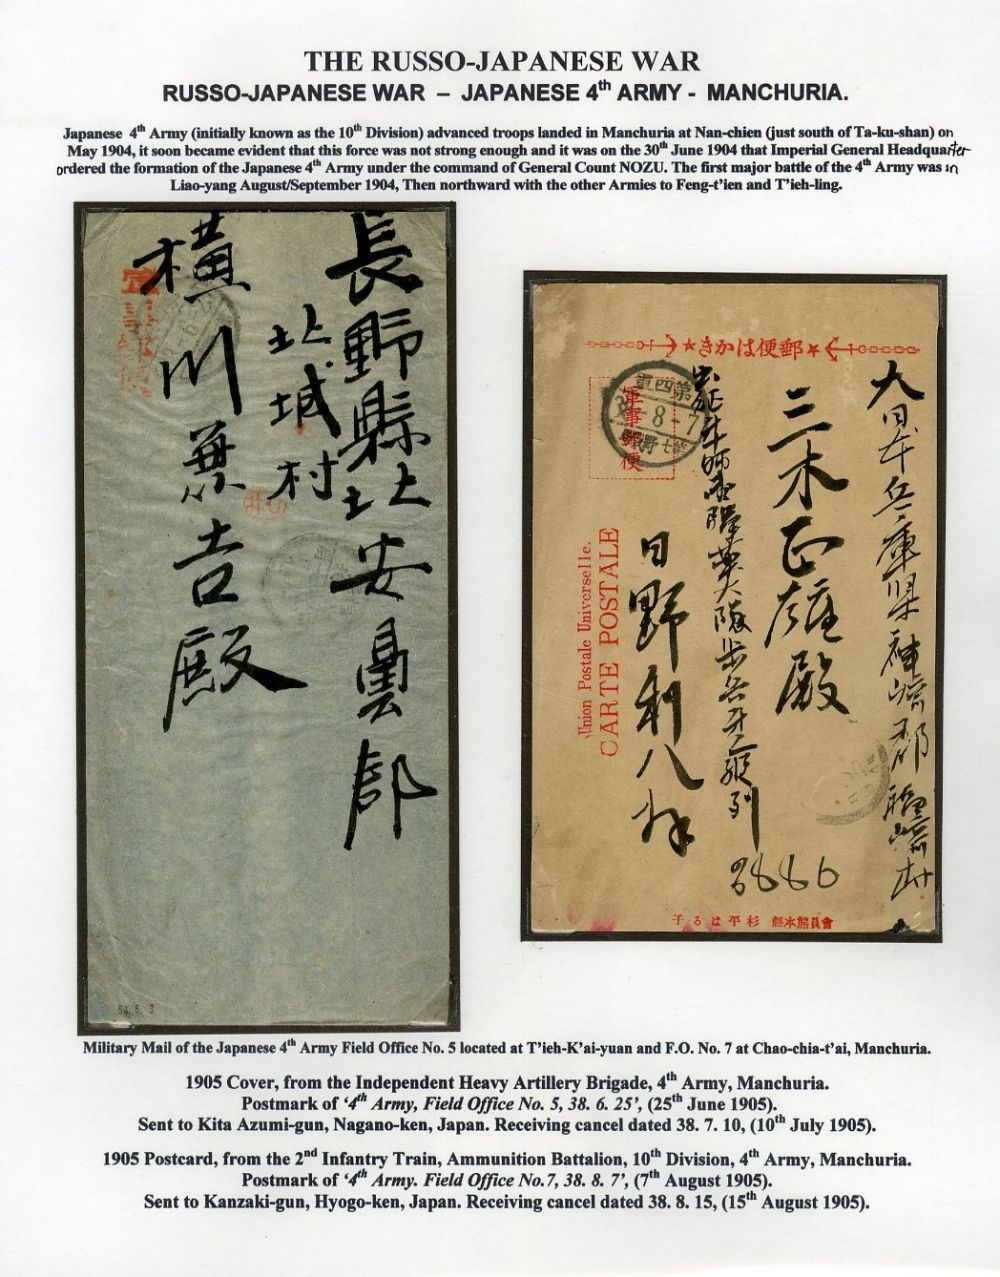 THE RUSSO-JAPANESE WAR
RUSSO-JAPANESE WAR – JAPANESE 4th ARMY - MANCHURIA.
Japanese 4th Army (initially known as the 10th Division) advanced troops landed in Manchuria at Nan-chien (just south of Ta-ku-shan) on
May 1904, it soon became evident that this force was not strong enough and it was on the 30th June 1904 that Imperial General Headquarter
ordered the formation of the Japanese 4th Army under the command of General Count NOZU. The first major battle of the 4th Army was in
Liao-yang August/September 1904, Then northward with the other Armies to Feng-t'ien and T'ieh-ling.
長野縣北安曇郡
北城村
横川兼吉殿
軍事郵便
54. 6. 3
きかは便郵
第四軍
8-7
軍事郵便
大日本兵庫県神崎郡
三木正雄殿
日野利八
Union Postale Universelle.
CARTE POSTALE
子るは平杉 熊本熊員會
Military Mail of the Japanese 4th Army Field Office No. 5 located at T'ieh-K'ai-yuan and F.O. No. 7 at Chao-chia-t'ai, Manchuria.
1905 Cover, from the Independent Heavy Artillery Brigade, 4th Army, Manchuria.
Postmark of '4th Army, Field Office No. 5, 38. 6. 25', (25th June 1905).
Sent to Kita Azumi-gun, Nagano-ken, Japan. Receiving cancel dated 38. 7. 10, (10th July 1905).
1905 Postcard, from the 2nd Infantry Train, Ammunition Battalion, 10th Division, 4th Army, Manchuria.
Postmark of '4th Army. Field Office No.7, 38. 8. 7', (7th August 1905).
Sent to Kanzaki-gun, Hyogo-ken, Japan. Receiving cancel dated 38. 8. 15, (15th August 1905).